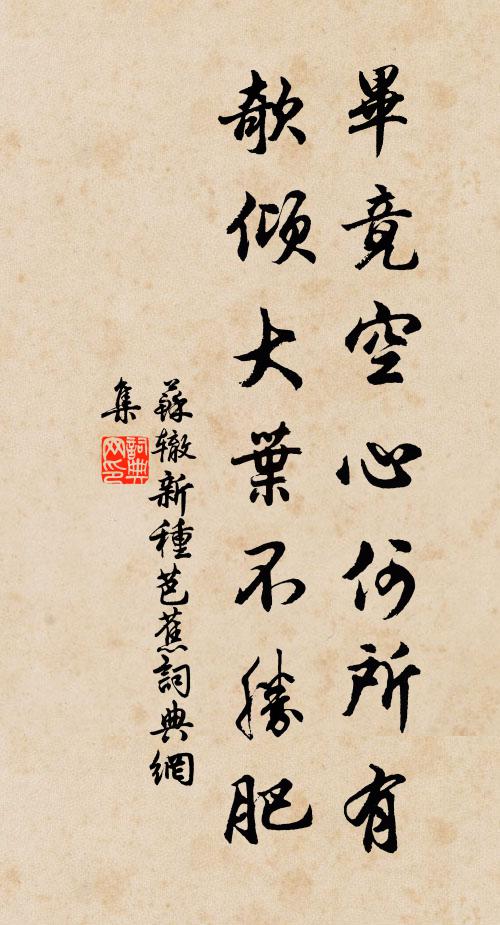 畢竟空心何所有
欹傾大葉不勝肥
蘇轍新種芭蕉詞典網
集
詞典
网印